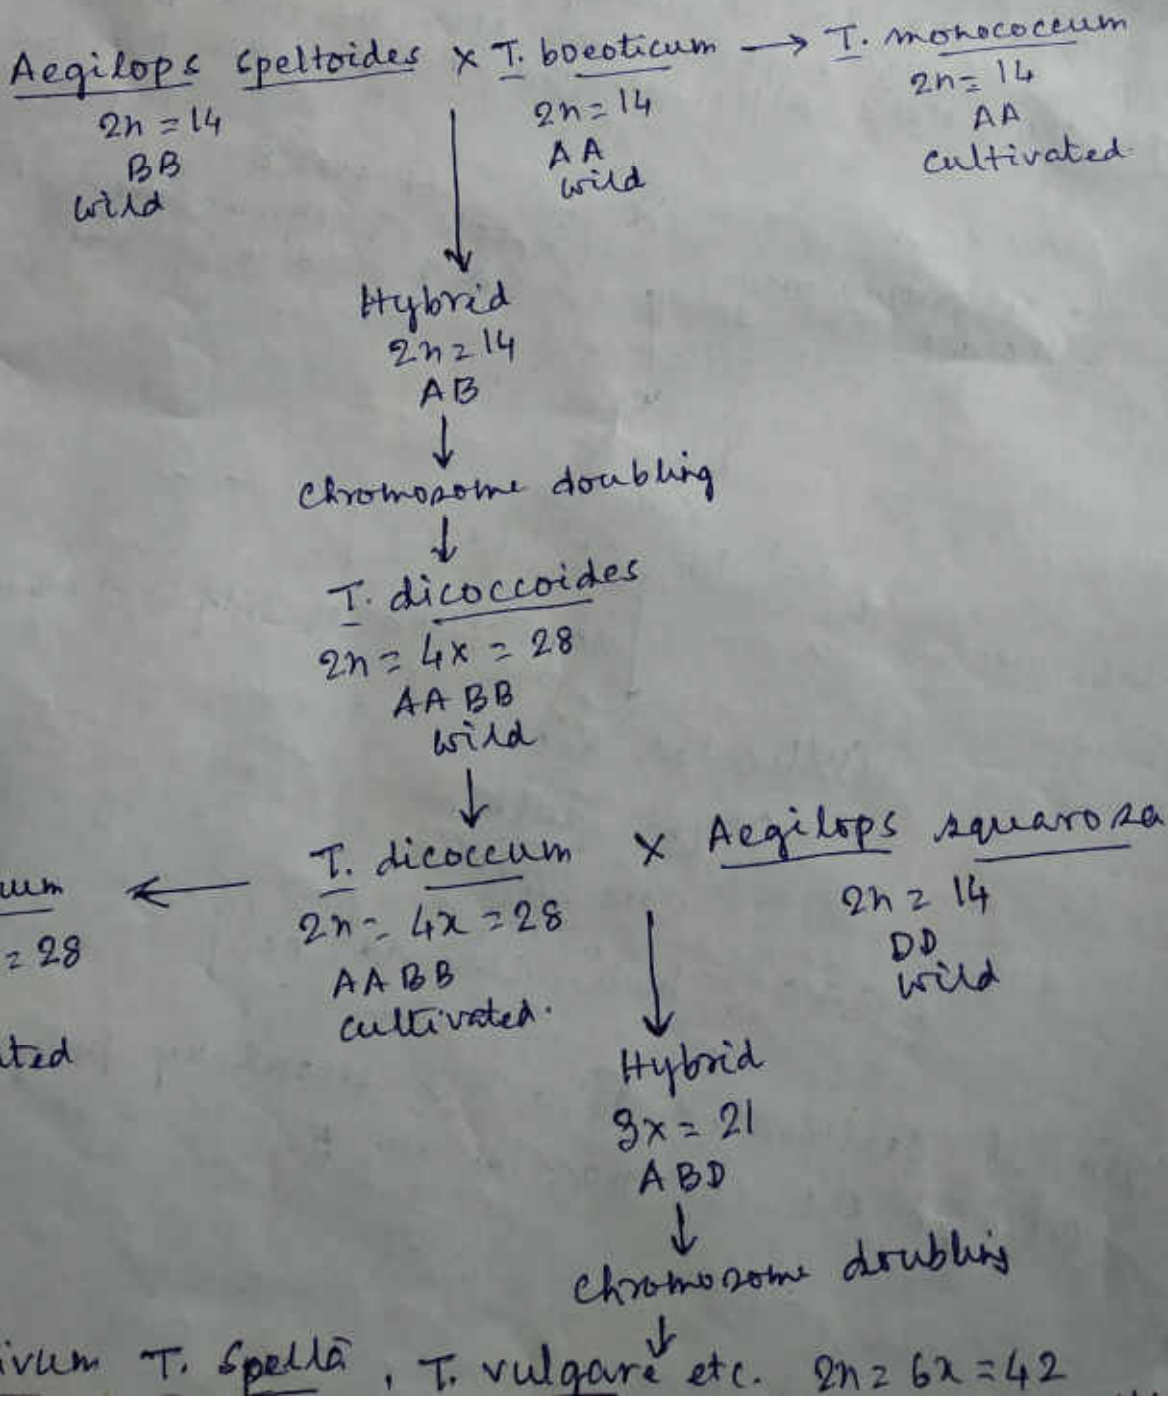 Aegilops speltoides × T. boeoticum → T. monococcum
2n = 14
BB
wild
2n = 14
AA
wild
2n = 14
AA
cultivated.
↓
Hybrid
2n = 14
AB
↓
Chromosome doubling
↓
T. dicoccoides
2n = 4x = 28
AA BB
wild
↓
um ← T. dicoccum × Aegilops squarosa
= 28
ated
2n = 4x = 28
AA BB
cultivated.
2n = 14
DD
wild
↓
Hybrid
3x = 21
ABD
↓
Chromosome doubling
↓
ivum T. spelta, T. vulgare etc. 2n = 6x = 42